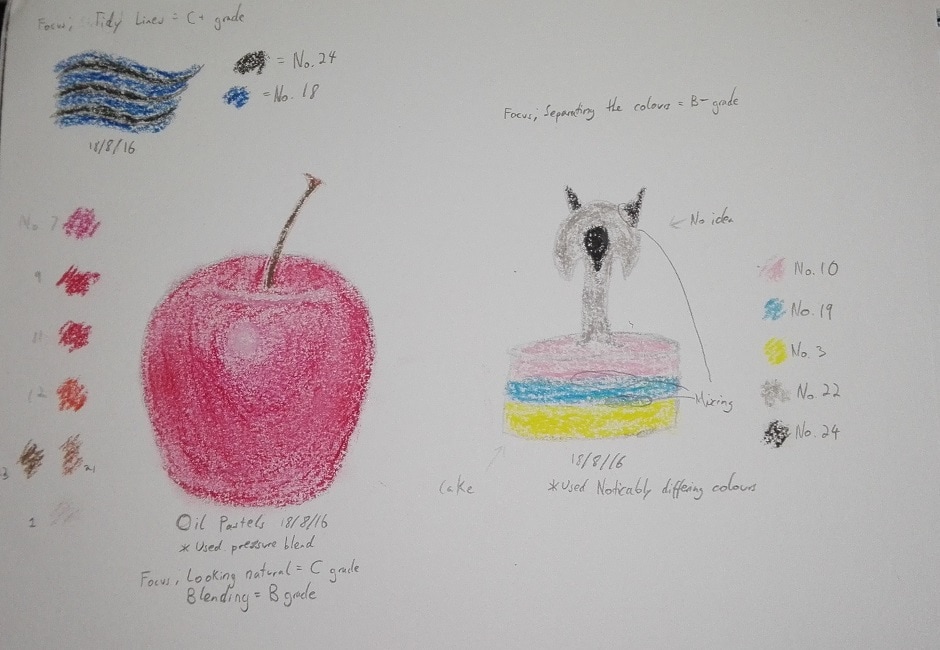 Focus; Tidy Lines = C+ grade
= No. 24
= No. 18
18/8/16
No. 7
9
11
12
21
1
Oil Pastels 18/8/16
* Used pressure blend
Focus; Looking natural = C grade
Blending = B grade
Focus; Separating the colours = B- grade
← No idea
No. 10
No. 19
No. 3
No. 22
No. 24
Mixing
18/8/16
Cake
* Used Noticably differing colours